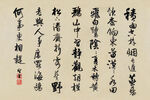 積雨空林烟火遲蒸藜
炊黍餉東菑漠漠水田
飛白鷺陰陰夏木囀黃
鸝山中習靜觀朝槿
松下清齋折露葵野
老與人爭席罷海鷗
何事更相疑